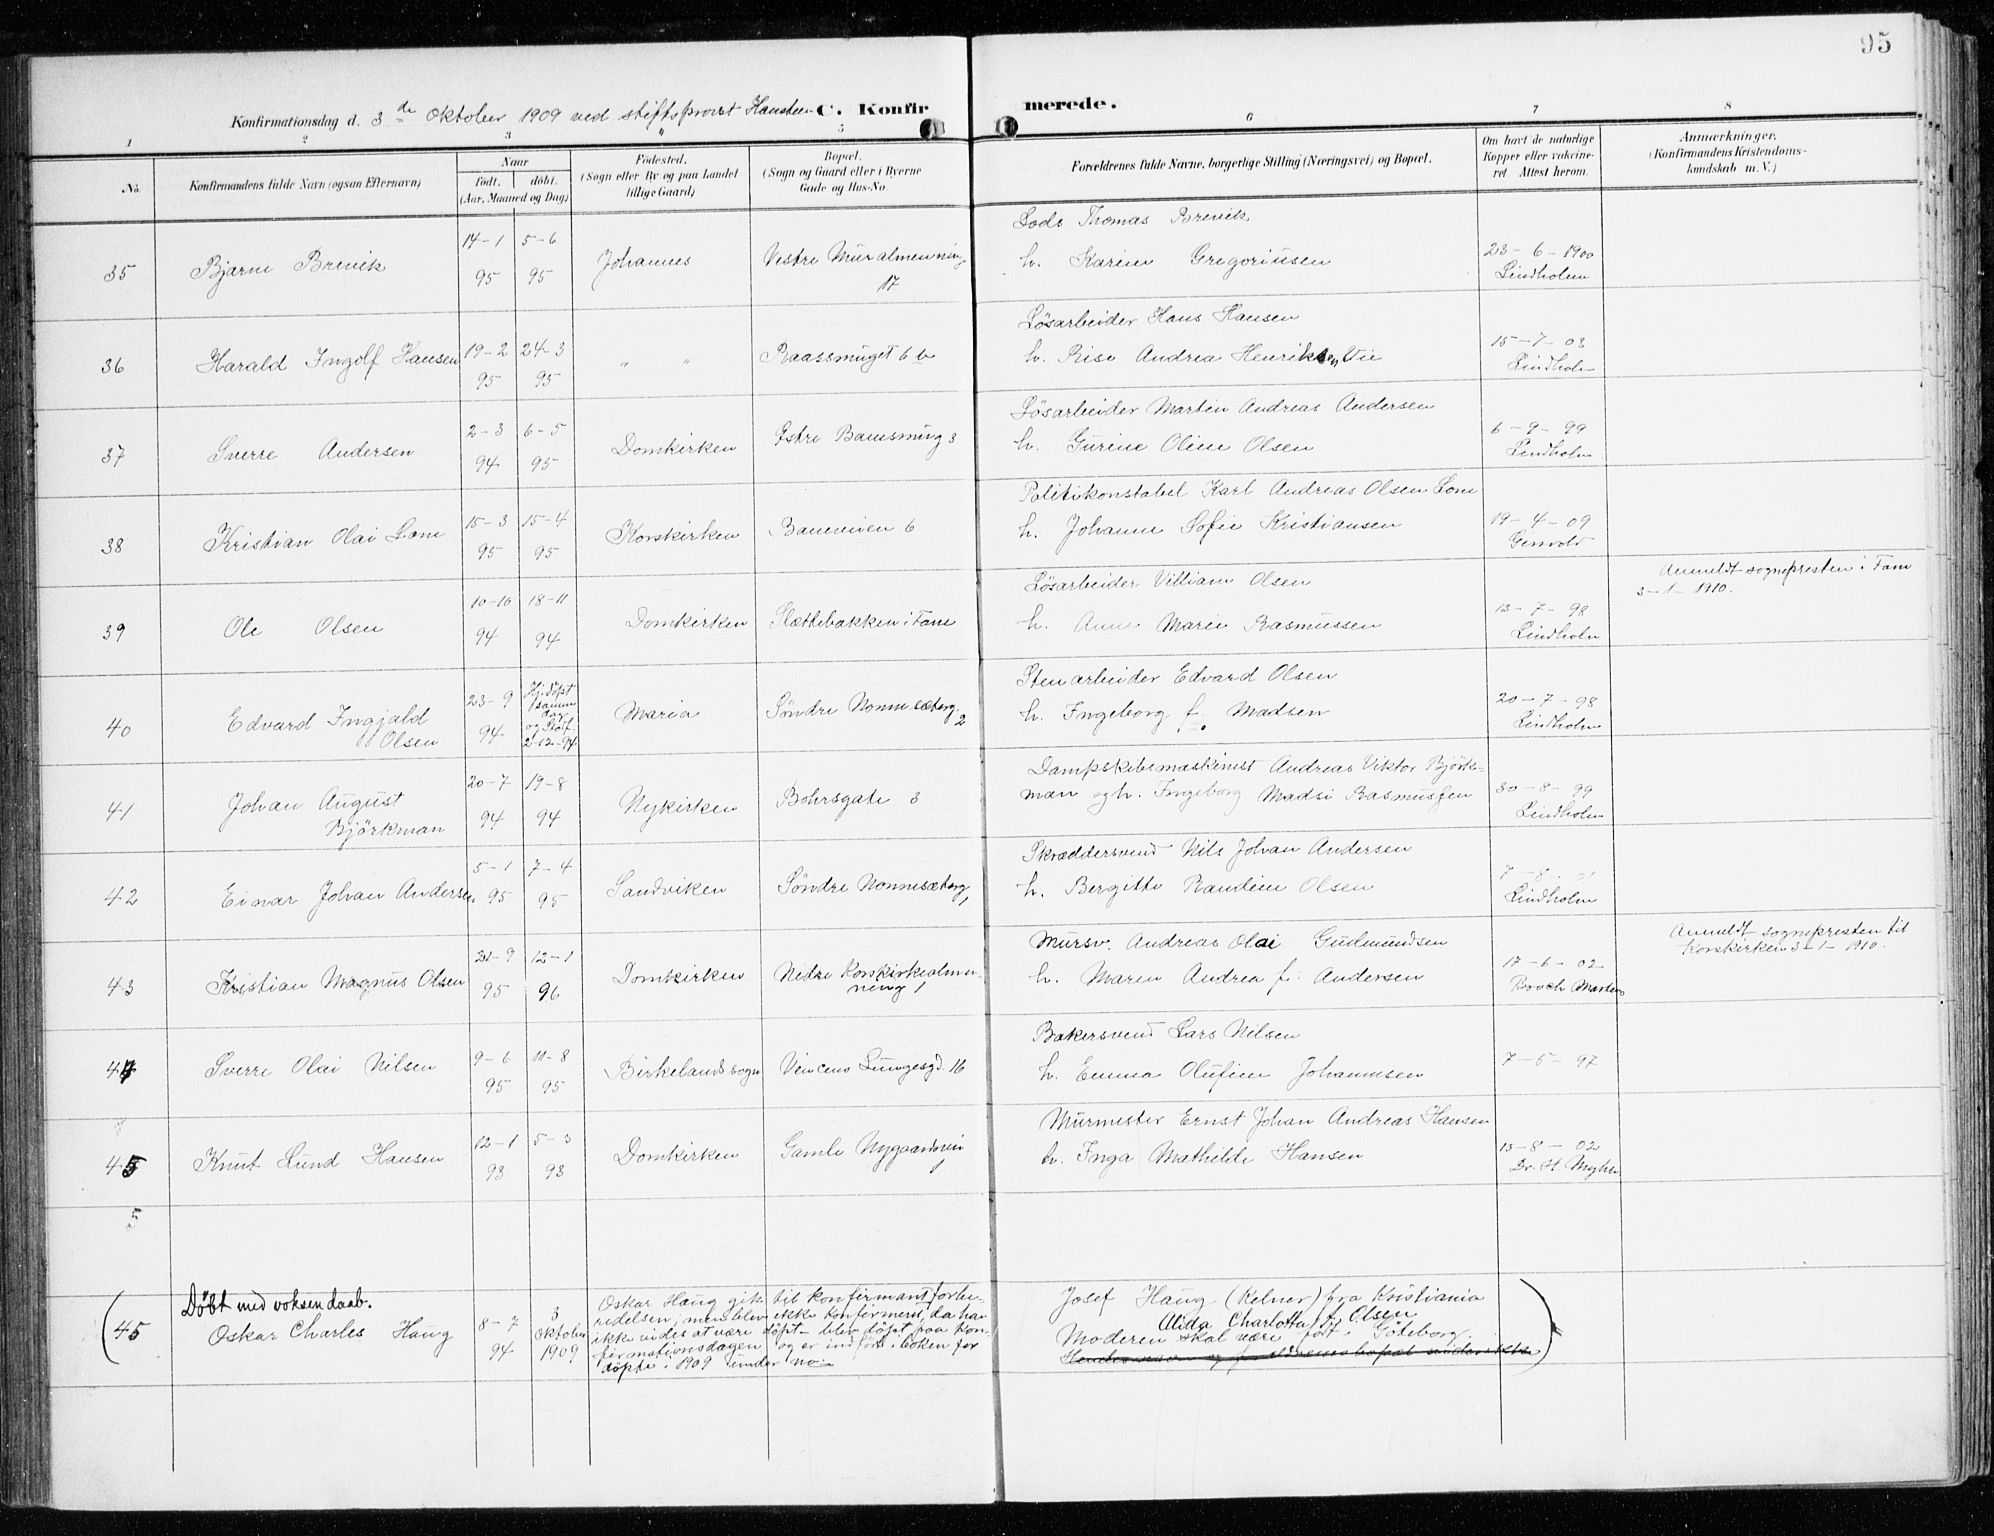 95
Konfirmationsdag d. 3de Oktober 1909 ved stiftsprovst Hansteen C. Konfirmerede.
1 2 3 4 5 6 7 8
No.
Konfirmandens fulde Navn (ogsaa Efternavn)
Naar
født. døbt.
(Aar, Maaned og Dag)
Fødested.
(Sogn eller By og paa Landet
tillige Gaard)
Bopæl.
(Sogn og Gaard eller i Byerne
Gade og Hus-No.
Forældrenes fulde Navne, borgerlige Stilling (Næringsvei) og Bopæl.
Om havt de naturlige
Kopper eller vakcine-
ret. Attest herom.
Anmærkninger.
(Konfirmandens Kristendoms-
kundskab m. V.)
35 Bjarne Brevik 14-1 95 5-6 95 Johannes Vestre Muralmenning 17
Lods Thomas Brevik
h. Karine Gregoriusen
23-6-1900
Lindholm
36 Harald Ingolf Hansen 19-2 95 24-3 95 " " Raassmuget 6 b
Løsarbeider Hans Hansen
h. Rise Andrea Henriksen Vie
15-7-03
Lindholm
37 Sverre Andersen 2-3 94 6-5 95 Domkirken Østre 3
Løsarbeider Martin Andreas Andersen
h. Gurine Oline Olsen
6-9-99
Lindholm
38 Kristian Olai Lone 15-3 95 15-4 95 Korskirken Baneveien 6
Politikonstabel Karl Andreas Olsen Lone
h. Johanne Sofie Kristiansen
19-4-09
39 Ole Olsen 10-10 94 18-11 94 Domkirken Slættebakken i Fane
Løsarbeider Villiam Olsen
h. Anne Marie Rasmussen
13-7-98
Lindholm
Anmeldt sognepresten i Fane
3-1-1910.
40 Edvard Ingjald
Olsen
23-9 94
Hj. døpt
samme
dag
og Stadf.
2-12-94
Maria Søndre Nonnesæterg. 2
Stenarbeider Edvard Olsen
h. Ingeborg f. Madsen
20-7-98
Lindholm
41 Johan August
Björkman
20-7 94 19-8 94 Nykirken Bohrsgate 3
Dampskibsmaskinist Andreas Viktor Björk-
man og h. Ingeborg Madsi Rasmussen
30-8-99
Lindholm
42 Einar Johan Andersen 5-1 95 7-4 95 Sandviken Søndre Nonnesæterg. 1
Skræddersvend Nils Johan Andersen
h. Bergitte Randine Olsen
7-8-
Lindholm
43 Kristian Magnus Olsen 21-9 95 12-1 96 Domkirken Nedre Korskirkealmen-
ning 1
Mursv. Andreas Olai Gudmundsen
h. Maren Andrea f. Andersen
17-6-02
Booch Martens
Anmeldt sognepresten til
Korskirken 3-1-1910.
44 Sverre Olai Nilsen 9-6 95 11-8 95 Birkelandssogn Vincens Lungesgd. 16
Bakersvend Lars Nilsen
h. Emma Olufine Johannesen
7-5-97
45 Knut Lund Hansen 12-1 93 5-3 93 Domkirken Gamle Nygaardsvei 1
Murmester Ernst Johan Andreas Hansen
h. Inga Mathilde Hansen
13-8-02
Dr. H. Myhre
5
Døbt med voksendaab.
(45 Oskar Charles Haug 8-7 94 3 Oktober 1909
Oskar Haug gik til konfirmantforbe-
redelsen, men blev ikke konfirmeret, da han
ikke vides at være døpt - blev døpt paa kon-
firmationsdagen og er indført i boken for
døpte i 1909 under no.
Josef Haug (Kelner) fra Kristiania
Alida Charlotta f. Olsen
Moderen skal være født i Göteborg.